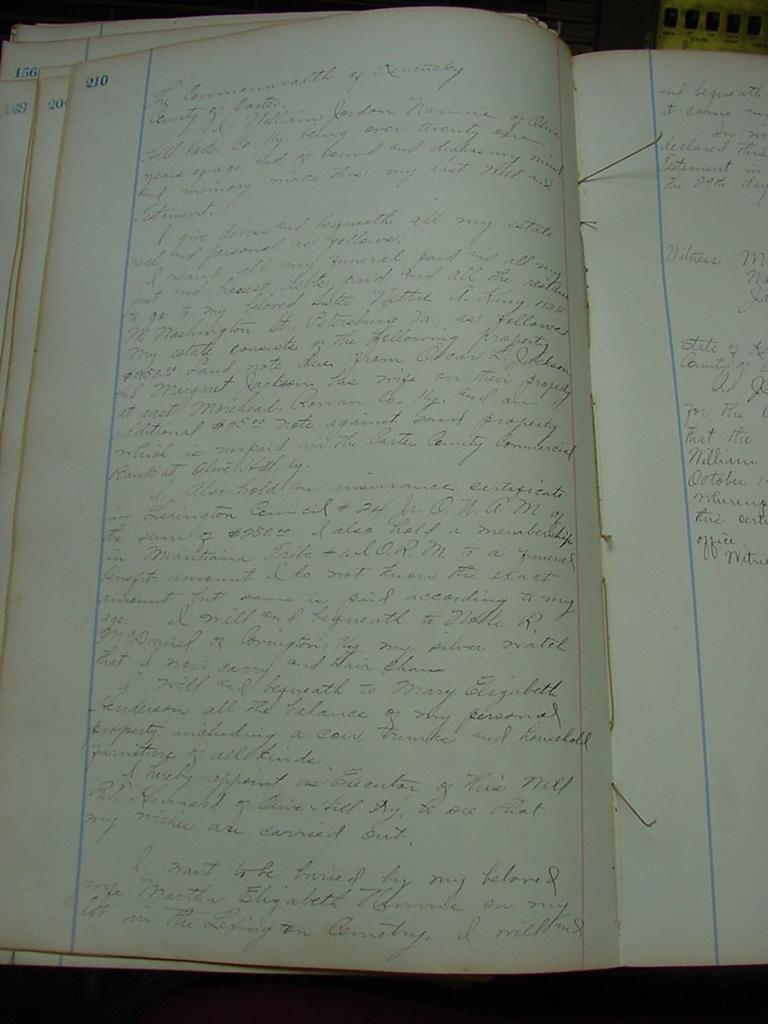 156
168
204
210
The Commonwealth of Kentucky
County of Carter,
I William Jordon Nannie of Olive
Hill Carter Co. Ky. being over twenty one
years of age and of sound and disposing mind
and memory make this my last Will and
Testament.
I give devise and bequeath all my estate
real and personal as follows;
I want all my funeral paid and all my
just and honest debts paid and all the residue
to go to my beloved sister Nettie A. King,
W Washington St., Petersburg Va., as follows
My estate consists of the following property
$950.00 Land note due from Oscar L. Jackson
and Margaret Jackson his wife on their property
at east Morehead, Rowan Co. Ky. and an
additional $75.00 note against said property
which is unpaid in the Carter County Commercial
Bank at Olive Hill, Ky.
I Also hold an insurance certificate
in Lexington Council # 24 Jr. O. U. A. M. of
the sum of $250.00. I also hold a membership
in Tribe # 1, I.O.R.M. to a funeral
benefit amount I do not know the exact
amount but same is paid according to my
age. I will and bequeath to R
McDaniel of Covington, Ky my silver watch
that I now carry and Hair Chain
I will and bequeath to Mary Elizabeth
Henderson all the balance of my personal
property including a cow, trunks and household
furniture of all kinds.
I hereby appoint as Executor of this Will
R.T. Kennard of Olive Hill Ky. to see that
my wishes are carried out.
I want to be buried by my beloved
wife Martha Elizabeth Nannie on my
lot in the Lexington Cemetry. I will and
and bequeath
it came
on
declared this
Testament in
the 29th day
Witness
State of
County of
for the
that the
William
October 1
Whereup
this certi
office
Witne